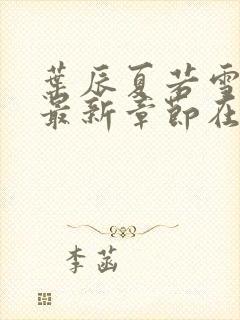 葉辰夏若雪
最新章節在
李菡